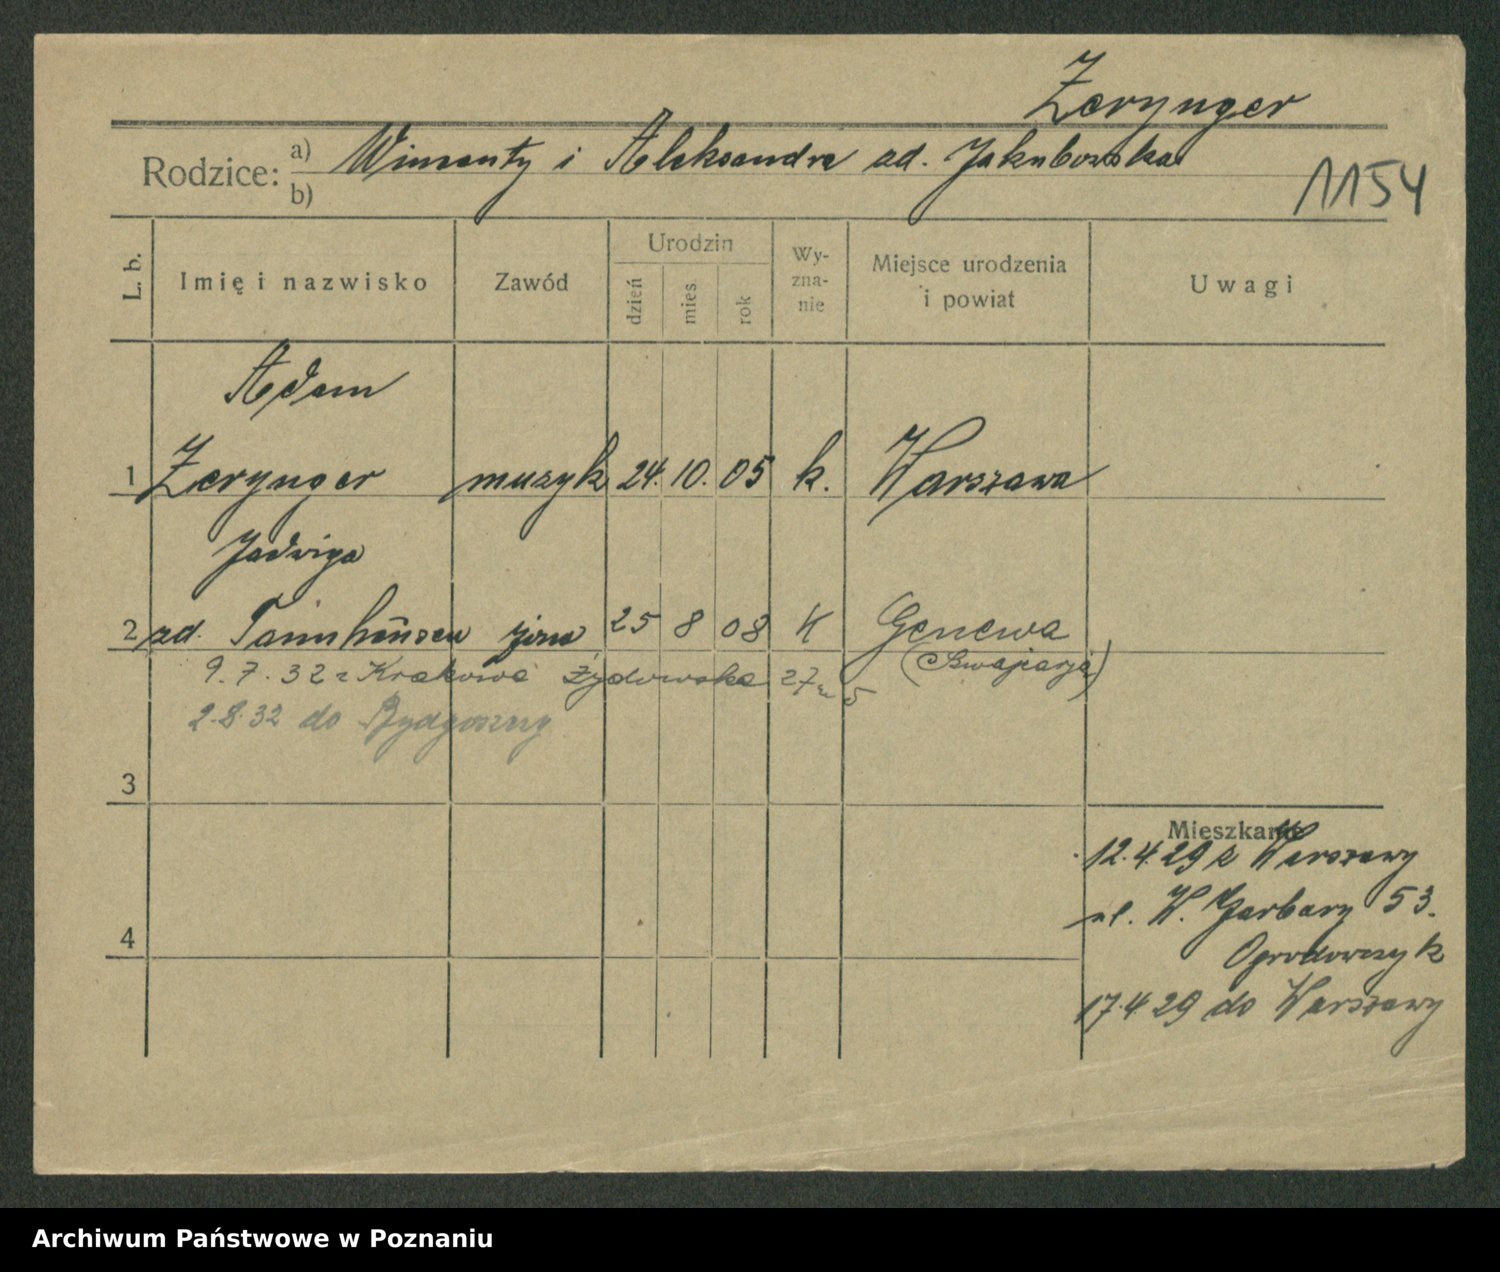 Zerynger
Rodzice: a) Wincenty i Aleksandra zd. Jakubowska
b)
1154
L. b.
Imię i nazwisko
Zawód
Urodzin
dzień
mies
rok
Wy-
zna-
nie
Miejsce urodzenia
i powiat
Uwagi
Adam
1 Zerynger muzyk 24. 10. 05 k. Warszawa
Jadwiga
2 zd. Tannhäusen żona 25 8 08 K Genewa
(Szwajcarja)
9.7.32 z Krakowa Żydowska 27 m 5
2.8.32 do Bydgoszczy
3
4
Mieszkanie
12.4.29 z Warszawy
ul. W. Garbary 53.
Ogrodowczyk
17.4.29 do Warszawy
Archiwum Państwowe w Poznaniu